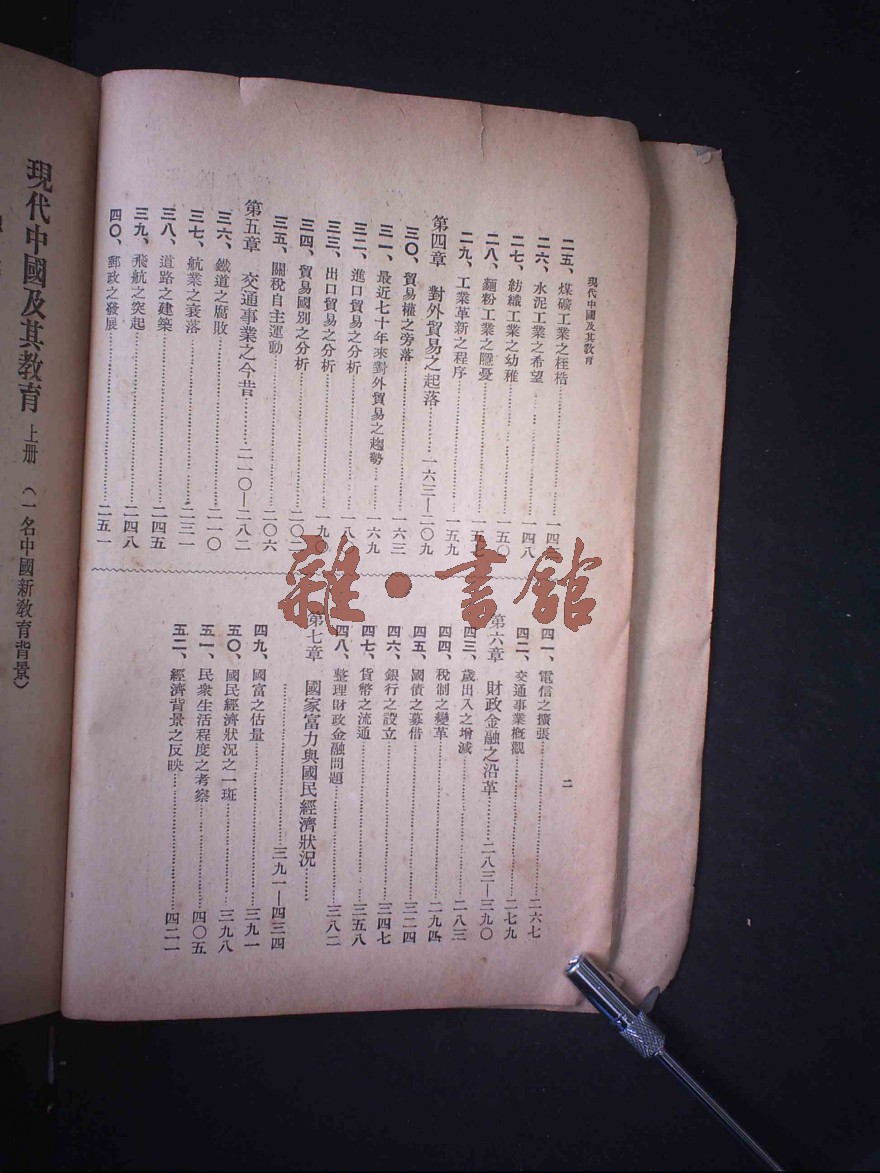 現代中國及其教育
二五、煤礦工業之桎梏
二六、水泥工業之希望……一四八
二七、紡織工業之幼稚……一五〇
二八、麵粉工業之隱憂……一五七
二九、工業革新之程序……一五九
第四章 對外貿易之起落……一六三—二〇九
三〇、貿易權之旁落……一六三
三一、最近七十年來對外貿易之趨勢……一六九
三二、進口貿易之分析
三三、出口貿易之分析……一九〇
三四、貿易國別之分析
三五、關稅自主運動……二〇六
第五章 交通事業之今昔……二一〇—二八二
三六、鐵道之腐敗……二一〇
三七、航業之衰落……二三一
三八、道路之建築……二四五
三九、飛航之突起……二四八
四〇、郵政之發展……二五一
四一、電信之擴張……二六七
四二、交通事業概觀……二七九
第六章 財政金融之沿革……二八三—三九〇
四三、歲出入之增減……二八三
四四、稅制之變革……二九四
四五、國債之募借……三二四
四六、銀行之設立……三四七
四七、貨幣之流通……三五八
四八、整理財政金融問題……三八二
第七章 國家富力與國民經濟狀況……
……三九一—四三四
四九、國富之估量……三九一
五〇、國民經濟狀況之一斑……三九八
五一、民衆生活程度之考察……四〇五
五二、經濟背景之反映……四二一
二
現代中國及其教育 上册 (一名中國新教育背景)
雜·書館